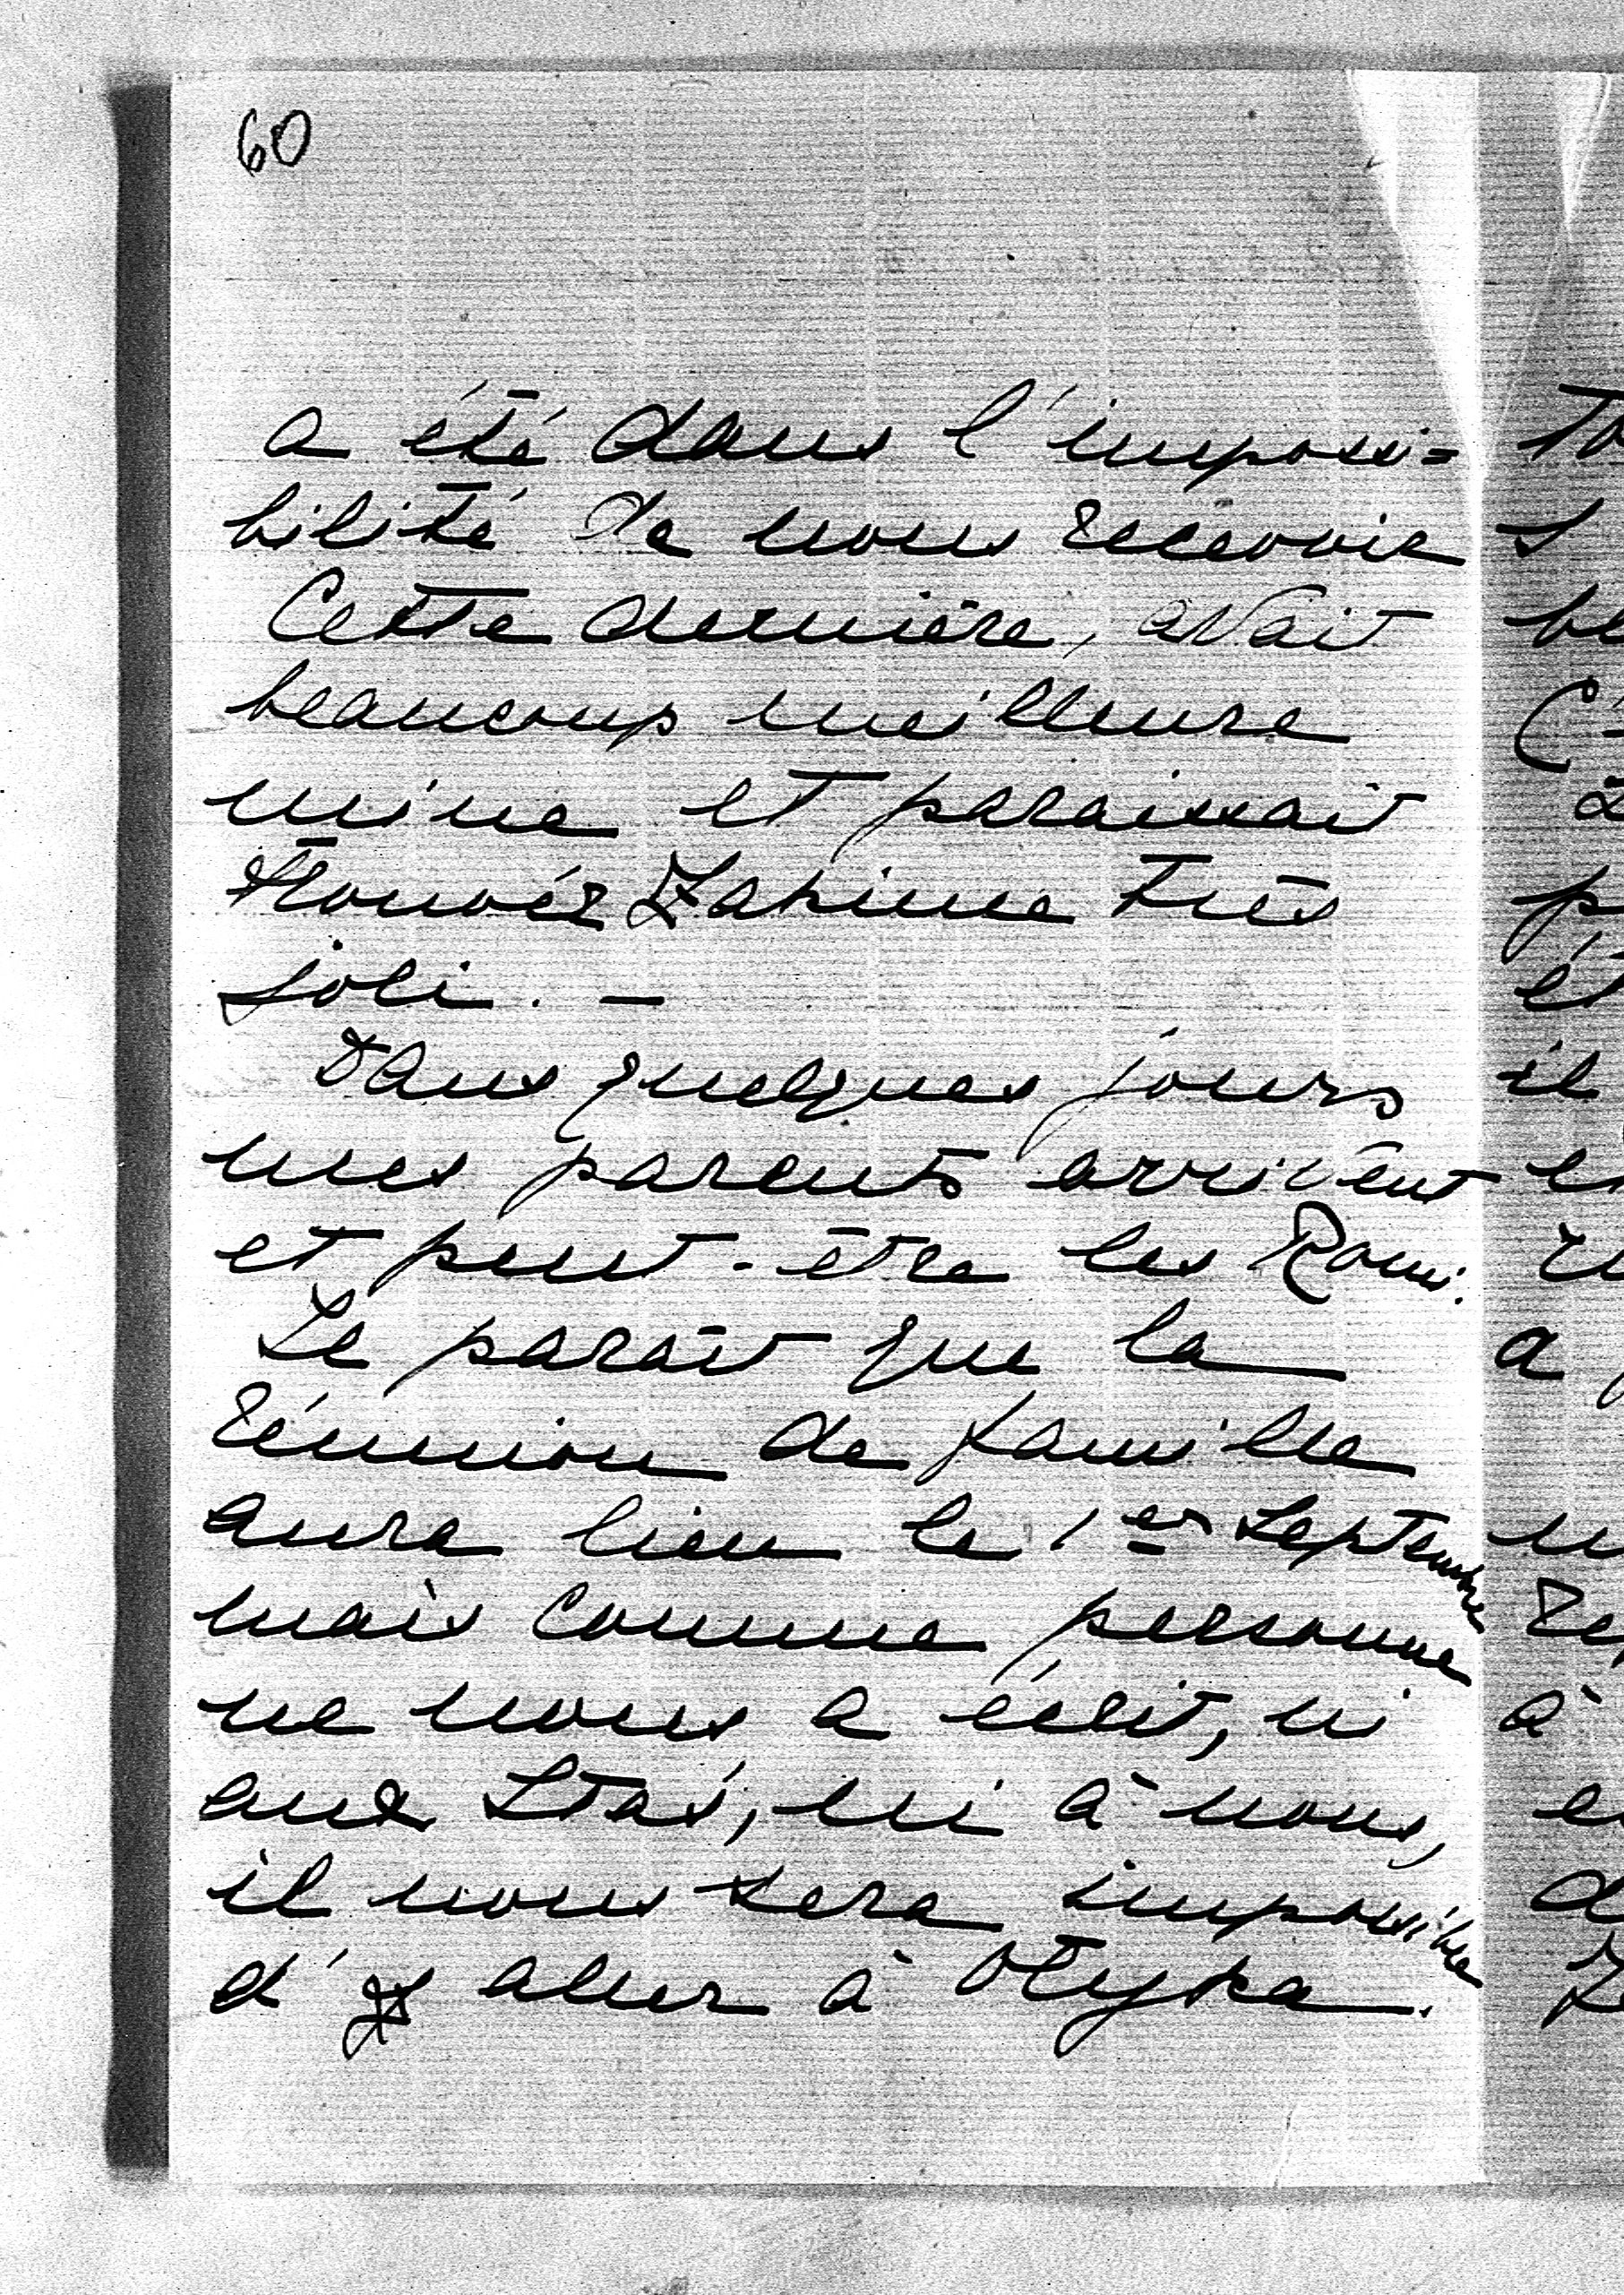 60
a été dans l'impossi=
bilité de nous recevoir
Cette dernière, avait
beaucoup meilleure
mine et paraissait
trouvér très
joli. —
Dans quelques jours
mes parents arrivent
et peut-être les Rom.
Le parait que la
réunion de famille
aura lieu le 1er Septembre
mais comme personne
ne nous a écrit, ni
aux Stas, ni à nous,
il nous sera impossible
d'y aller à